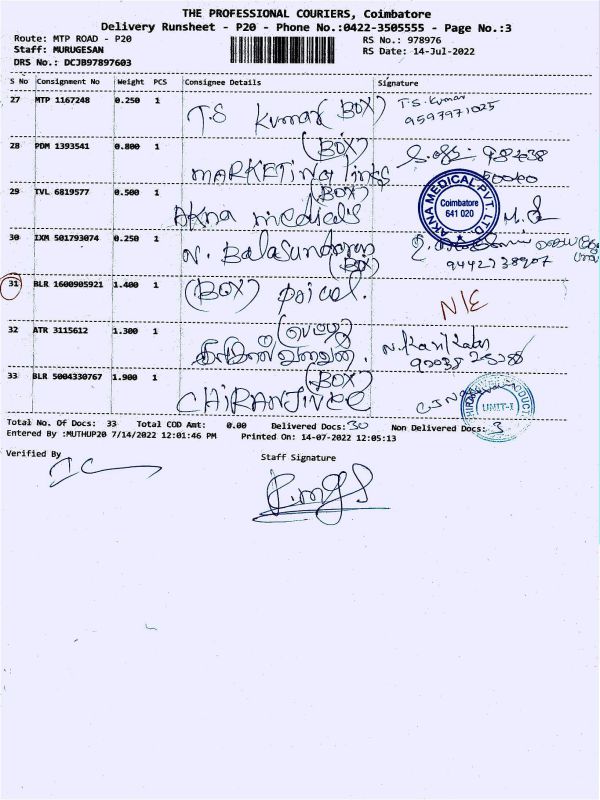 THE PROFESSIONAL COURIERS, Coimbatore
Delivery Runsheet - P20 - Phone No.:0422-3505555 - Page No.:3
Route: MTP ROAD - P20
Staff: MURUGESAN
DRS No.: DCJB97897603
RS No.: 978976
RS Date: 14-Jul-2022
S No Consignment No Weight PCS Consignee Details Signature
27 MTP 1167248 0.250 1 T.S Kumar (BOX) T.S. Kumar
9597971025
28 PDM 1393541 0.800 1 (BOX)
MARKETing links
29 TVL 6819577 0.500 1 (BOX)
Akna medicals
AKNA MEDICAL PVT. LTD.
Coimbatore
641 020
30 IXM 501793074 0.250 1 N. Balasundaram
(BOX)
9442738907
31 BLR 1600905921 1.400 1 (BOX) N/E
32 ATR 3115612 1.300 1 (பெட்டி)
33 BLR 5004330767 1.900 1 (BOX)
CHIRANJIVEE
UNIT-I
Total No. Of Docs: 33 Total COD Amt: 0.00 Delivered Docs: 30 Non Delivered Docs: 3
Entered By :MUTHUP20 7/14/2022 12:01:46 PM Printed On: 14-07-2022 12:05:13
Verified By
Staff Signature